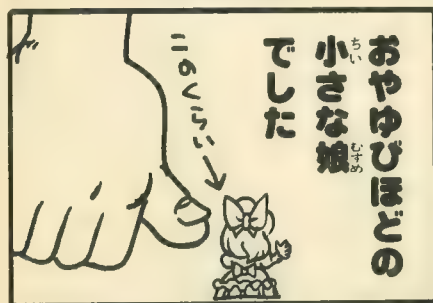 おやゆびほどの
小さな娘
でした
このくらい→